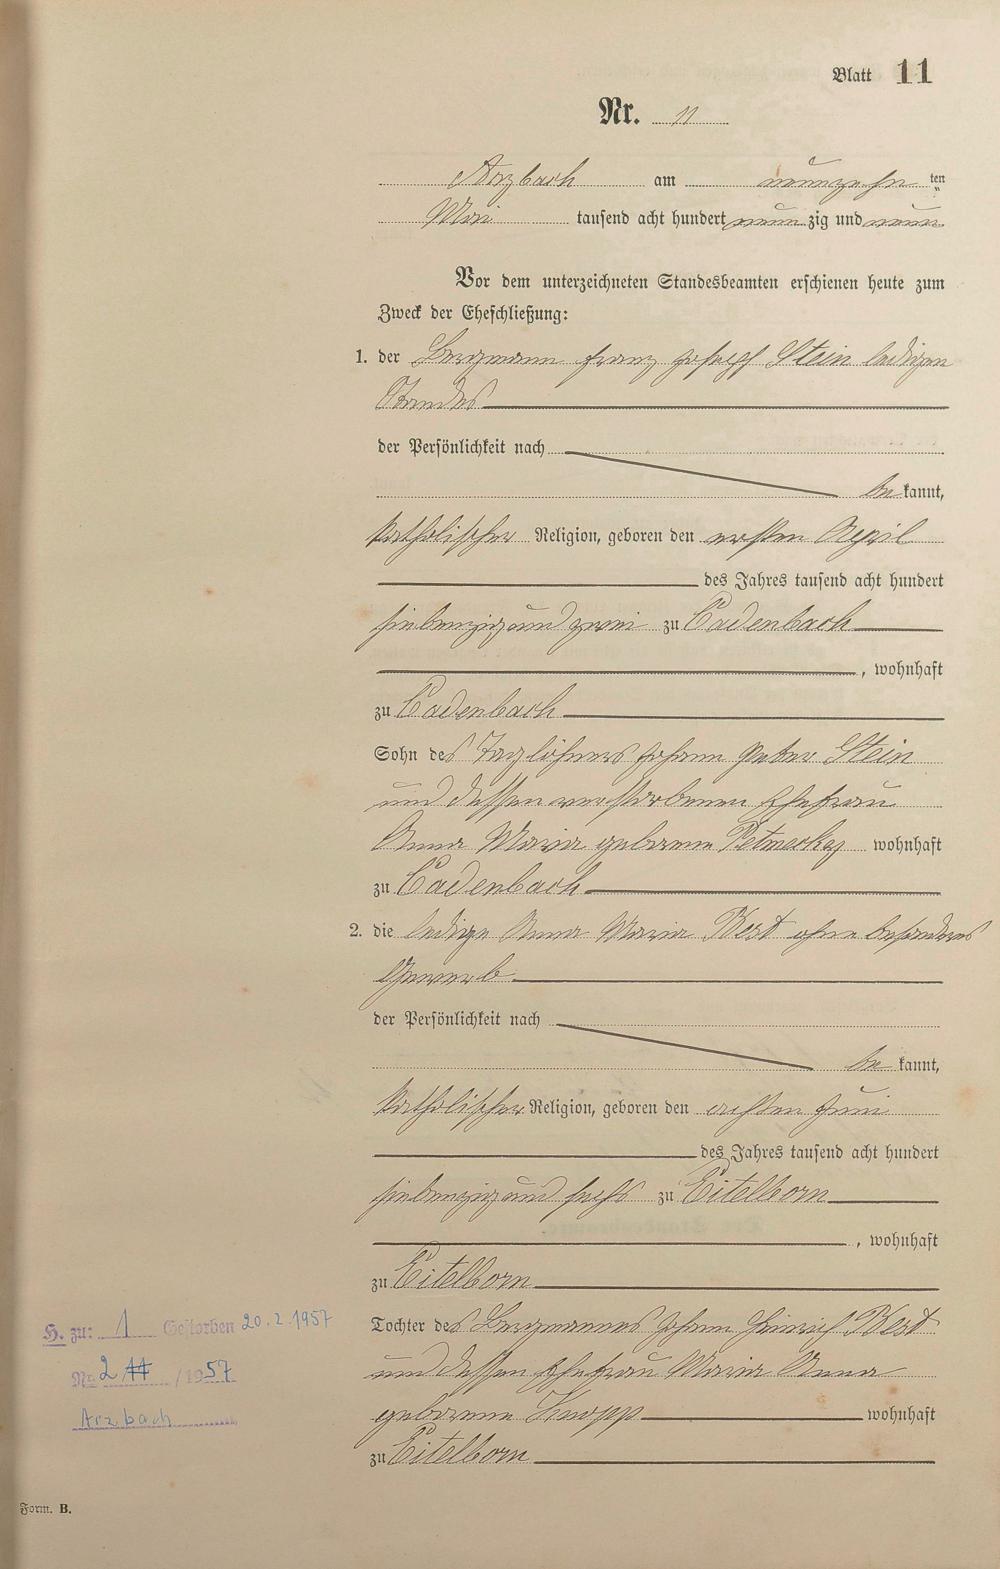 Blatt 11
Nr. 11
Arzbach am neunzehnten
Mai tausend acht hundert neunzig und neun
Vor dem unterzeichneten Standesbeamten erschienen heute zum
Zweck der Eheschließung:
1. der Bergmann Franz Joseph Stein ledigen
Standes
der Persönlichkeit nach
bekannt,
katholischer Religion, geboren den ersten April
des Jahres tausend acht hundert
siebenzig und zwei zu Cadenbach
, wohnhaft
zu Cadenbach
Sohn des Taglöhners Johann Peter Stein
und dessen verstorbenen Ehefrau
Anna Maria geborene wohnhaft
zu Cadenbach
2. die ledige Anna Maria Best ohne besonderes
Gewerb
der Persönlichkeit nach
bekannt,
katholischer Religion, geboren den achten Juni
des Jahres tausend acht hundert
siebenzig und sechs zu Eitelborn
, wohnhaft
zu Eitelborn
Tochter des Bergmannes Johann Heinrich Best
und dessen Ehefrau Maria Anna
geborene Knopp wohnhaft
zu Eitelborn
H. zu: 1 Gestorben 20.2.1957
Nr. 2 /1957
Arzbach
Form. B.